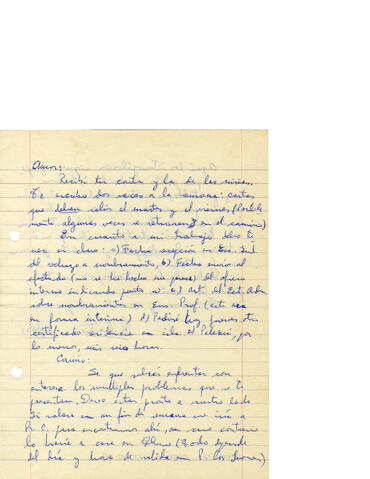 Amor:
Recibí tu carta y la de las niñas.
Te escribo dos veces a la semana: cartas
que deben salir el martes y el viernes (Posible-
mente algunas veces se retrasen en el camino)
En cuanto a mi trabajo debo te-
ner en claro: a) Fecha creación en
del y nombramiento, b) Fecha envío al
afectado (no se ha hecho) El oficio
interno indicando c) art. del Est. Adm.
sobre nombramientos en Em. Prof. (est sea
en forma interina) d) Pediré
certificado residencia en isla. e) Pelearé, por
lo menos, mis seis horas.
Cariño:
Se que sabrás enfrentar con
entereza los múltiples problemas que se te
presentan. Deseo estar pronto a vuestro lado
Si saliera en un fin de semana me iría a
para encontrarnos ahí, en caso contrario
lo haría a casa en (Todo depende
del día y hora de salida en